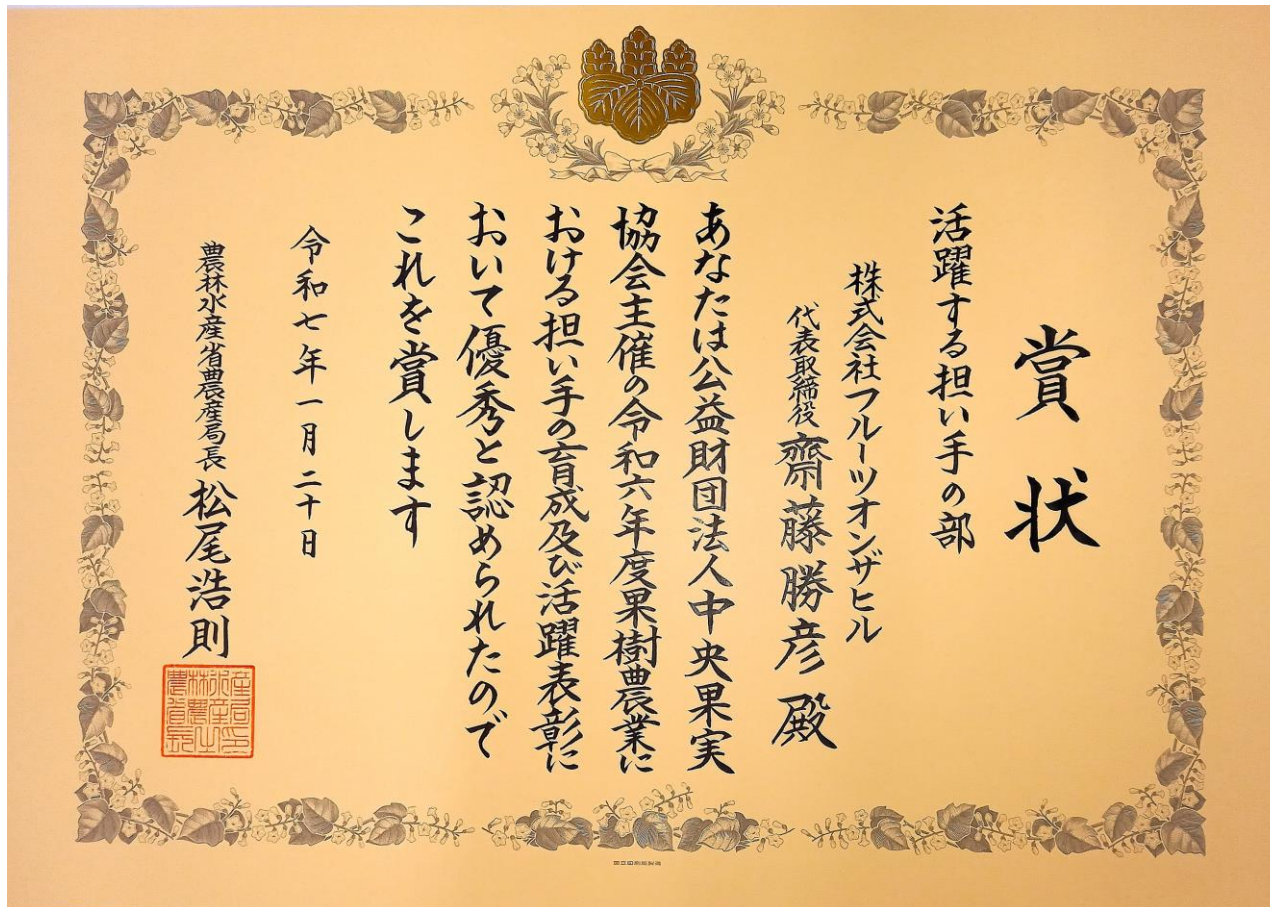 賞状
活躍する担い手の部
株式会社フルーツオンザヒル
代表取締役 齋藤勝彦殿
あなたは公益財団法人中央果実
協会主催の令和六年度果樹農業に
おける担い手の育成及び活躍表彰に
おいて優秀と認められたので
これを賞します
令和七年一月二十日
農林水産省農産局長 松尾浩則